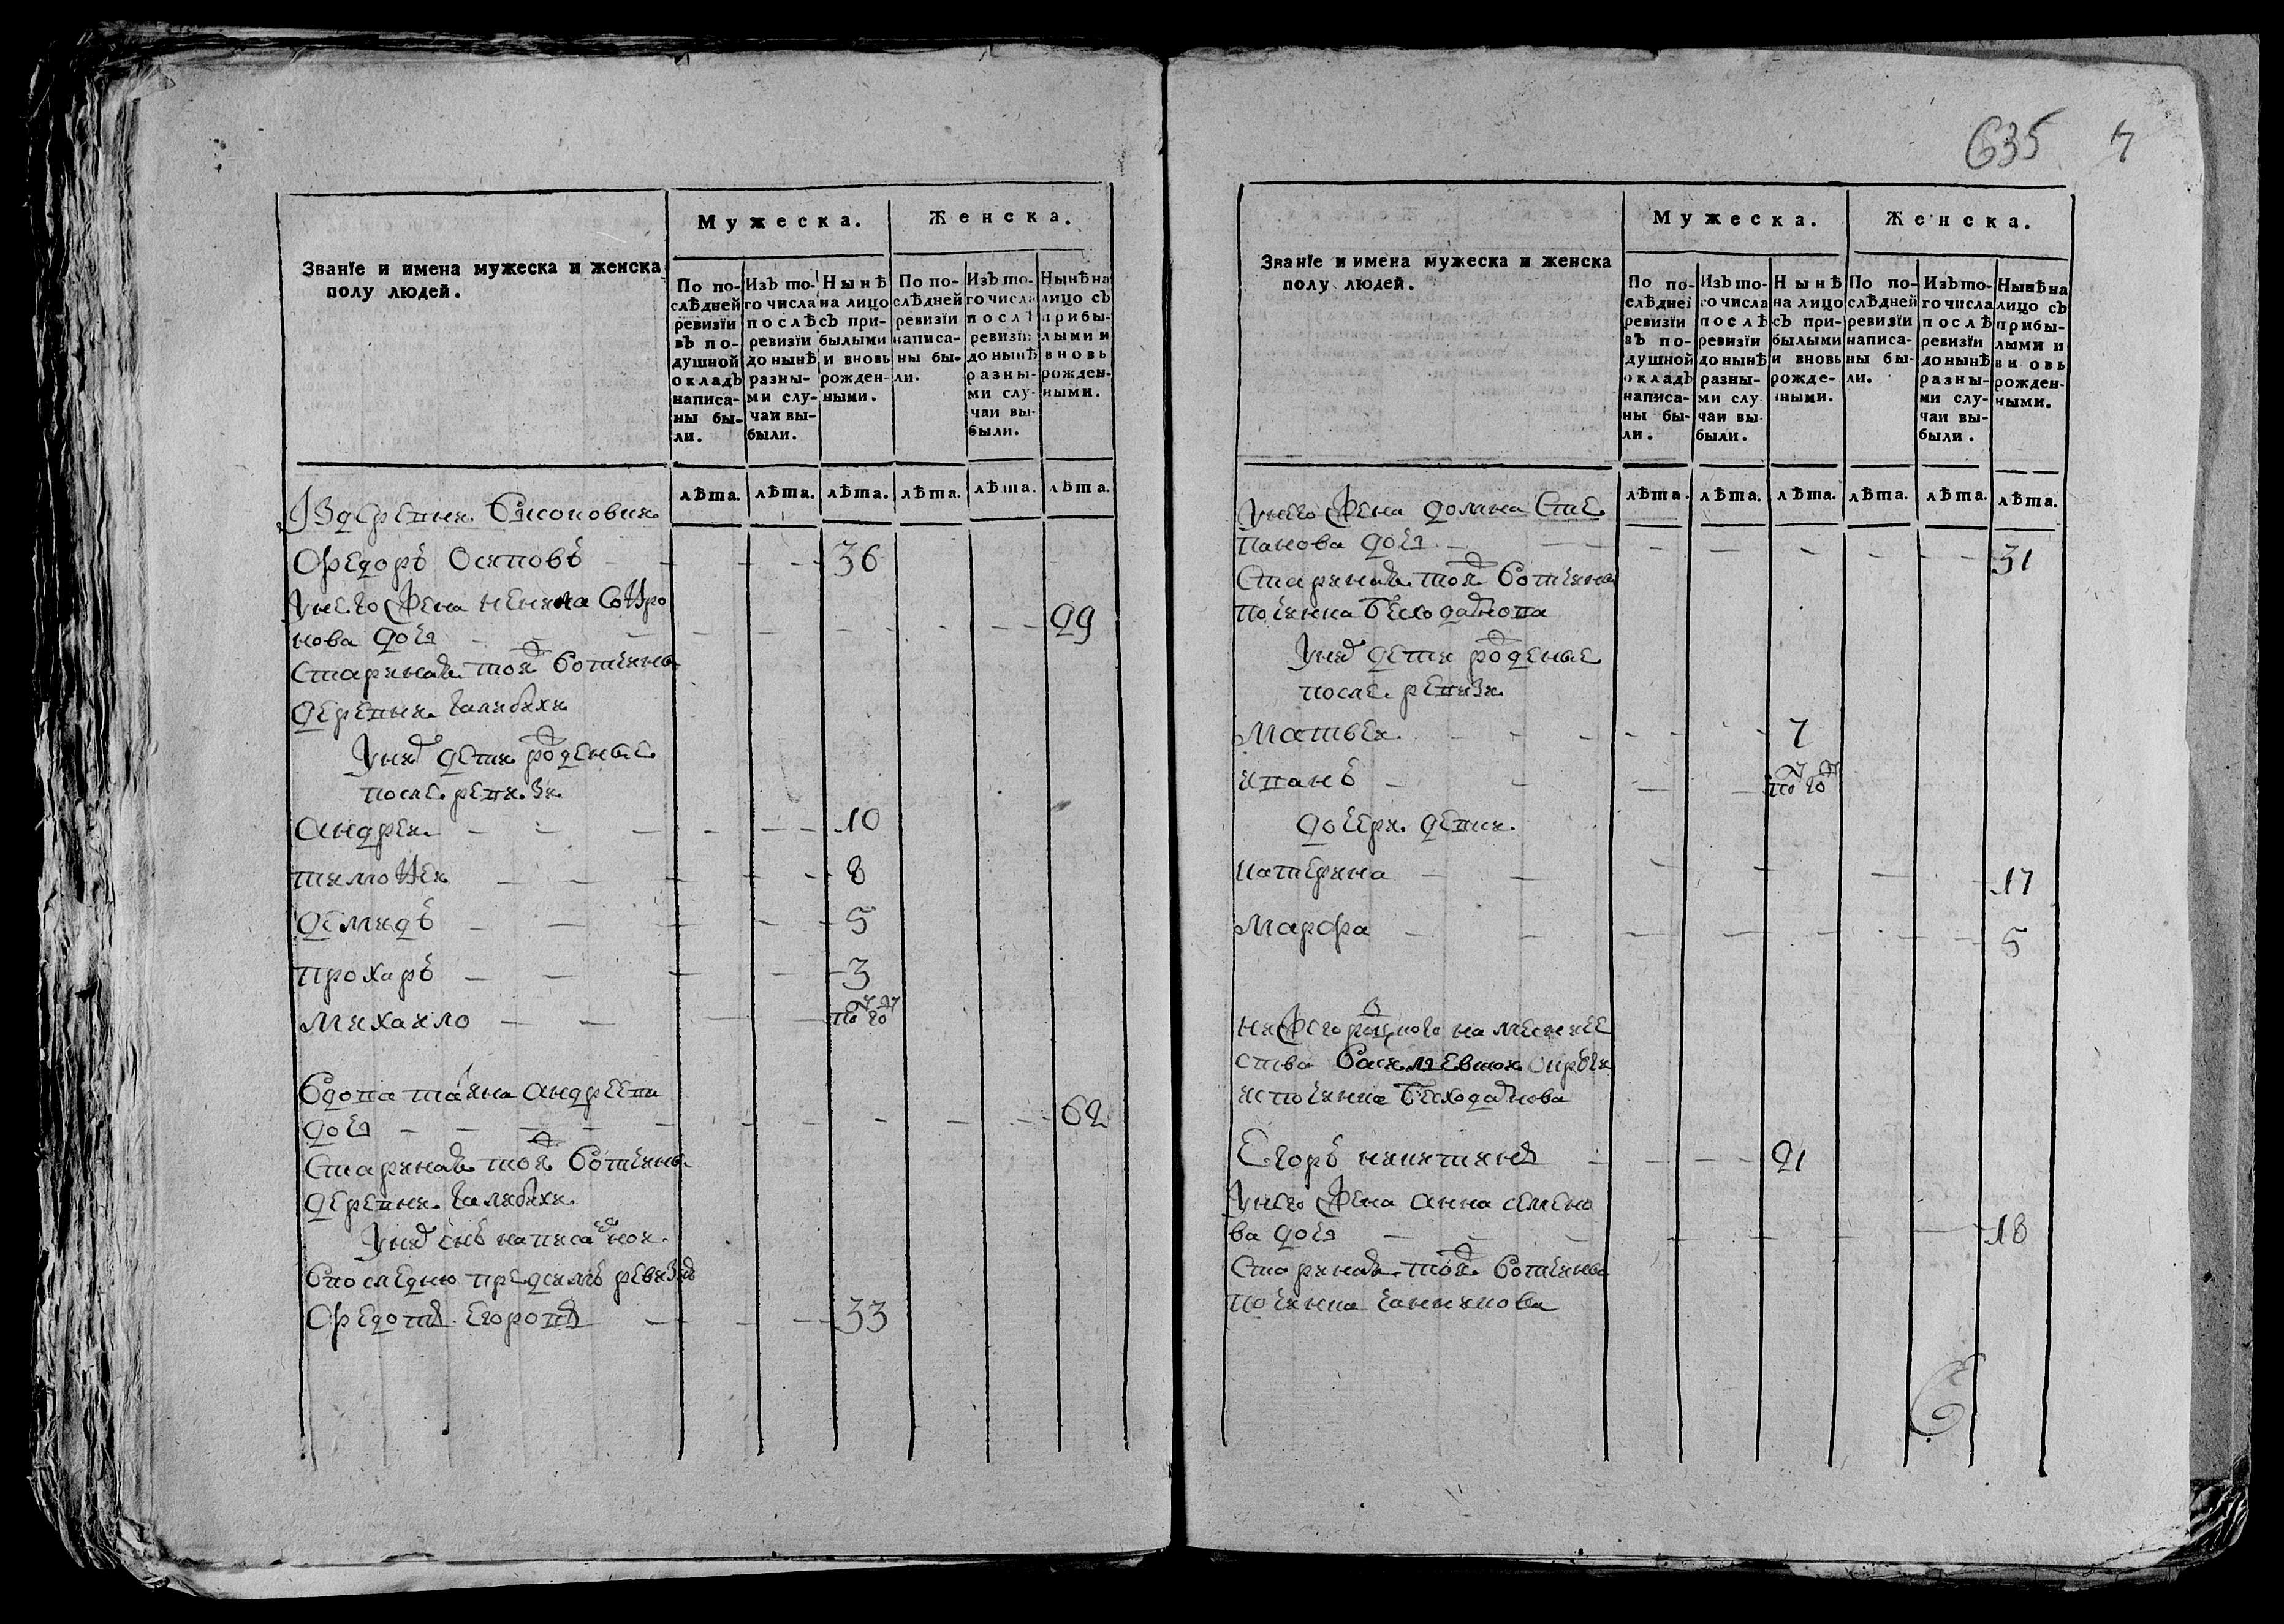 635 7
Мужеска. Женска.
Званїе и имена мужеска и женска
полу людей.
По по-
слѣдней
ревизїи
въ по-
душной
окладъ
написа-
ны бы-
ли.
Изъ то-
го числа
послѣ
ревизїи
до нынѣ
разны-
ми слу-
чаи вы-
были.
Нынѣ
на лицо
съ при-
былыми
и вновь
рожден-
ными.
По по-
слѣдней
ревизїи
написа-
ны бы-
ли.
Изъ то-
го числа
послѣ
ревизїи
до нынѣ
разны-
ми слу-
чаи вы-
были.
Нынѣ на
лицо съ
прибы-
лыми и
вновь
рожден-
ными.
лѣта. лѣта. лѣта. лѣта. лѣта. лѣта.
Із деревни
Федоръ Осиповъ 36
у него жена
нова дочь 29
старинная той вотчины
деревни
у них дети рожденые
после ревизи
андреи 10
тимоѳеи 8
демидъ 5
прохаръ 3
михаило по го
вдова татиана андреева
дочь 62
старинная той вотчины
деревни
у неи снъ написаной
в последнюю пред симъ ревизию
Федотъ егоровъ 33
Мужеска. Женска.
Званїе и имена мужеска и женска
полу людей.
По по-
слѣдней
ревизїи
въ по-
душной
окладъ
написа-
ны бы-
ли.
Изъ то-
го числа
послѣ
ревизїи
до нынѣ
разны-
ми слу-
чаи вы-
были.
Нынѣ
на лицо
съ при-
былыми
и вновь
рожде-
нными.
По по-
слѣдней
ревизїи
написа-
ны бы-
ли.
Изъ то-
го числа
послѣ
ревизїи
до нынѣ
разны-
ми слу-
чаи вы-
были.
Нынѣ на
лицо съ
прибы-
лыми и
вновь
рожден-
ными.
лѣта. лѣта. лѣта. лѣта. лѣта. лѣта.
у него жена домна сте
панова дочь 31
старинная той вотчины
починка
у них дети рожденые
после ревизи
матвеи 7
иванъ по го
дочери девки
катерина 17
марфа 5
нижегороцкого наместниче
ства василевской округи
ис починка
Егоръ никитинъ 21
у него жена анна семено
ва дочь 18
старинная той вотчины
починка